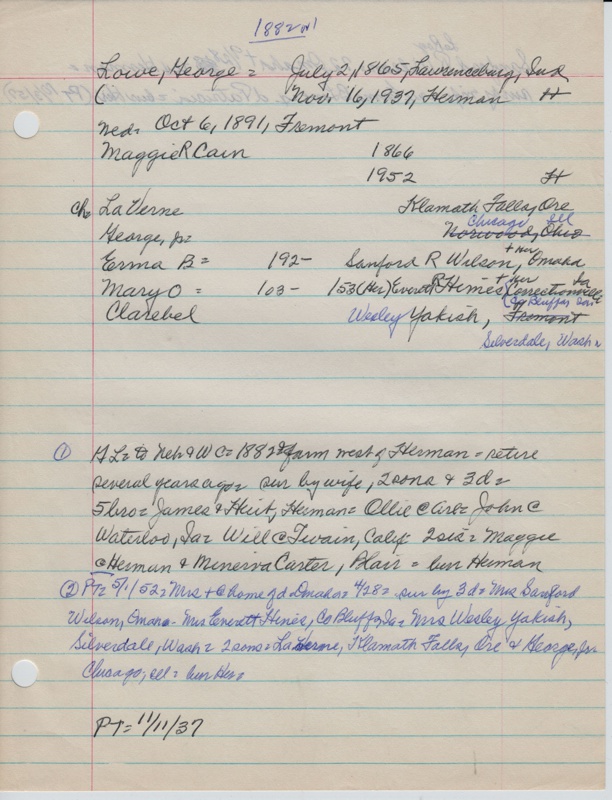 1882 W1
Lowe, George = July 2, 1865, Lawrenceburg, Ind
( Nov. 16, 1937, Herman H
Ned= Oct 6, 1891, Fremont
Maggie R Cain 1866
1952 H
Ch= LaVerne Klamath Falls, Ore
George, Jr= Norwood, Ohio Chicago Ill
Erma B = 192- Sanford R Wilson, Omaha
Mary O = 103- 153 (Her) Everett R Hines + her Correctionville Ia
Co Bluffs, Ia
Clarebel Wesley Yakish, Fremont
Silverdale, Wash =
① G L= to Neb & W C= 1882 = farm west of Herman = retire
several years ago = sur by wife, 2 sons & 3 d=
5 bro= James & Heist, Herman= Ollie C Ore= John C
Waterloo, Ia= Will C Twain, Calif= 2 sis= Maggie
C Herman & Minerva Carter, Blair = bur Herman
② PT= 5/1/52= Mrs + C home of d Omaha= 4/28= sur by 3 d= Mrs Sanford
Wilson, Omaha - Mrs Everett Hines, Co Bluffs, Ia= Mrs Wesley Yakish,
Silverdale, Wash = 2 sons= LaVerne, Klamath Falls, Ore & George, Jr=
Chicago, Ill= bur Her=
PT= 11/11/37